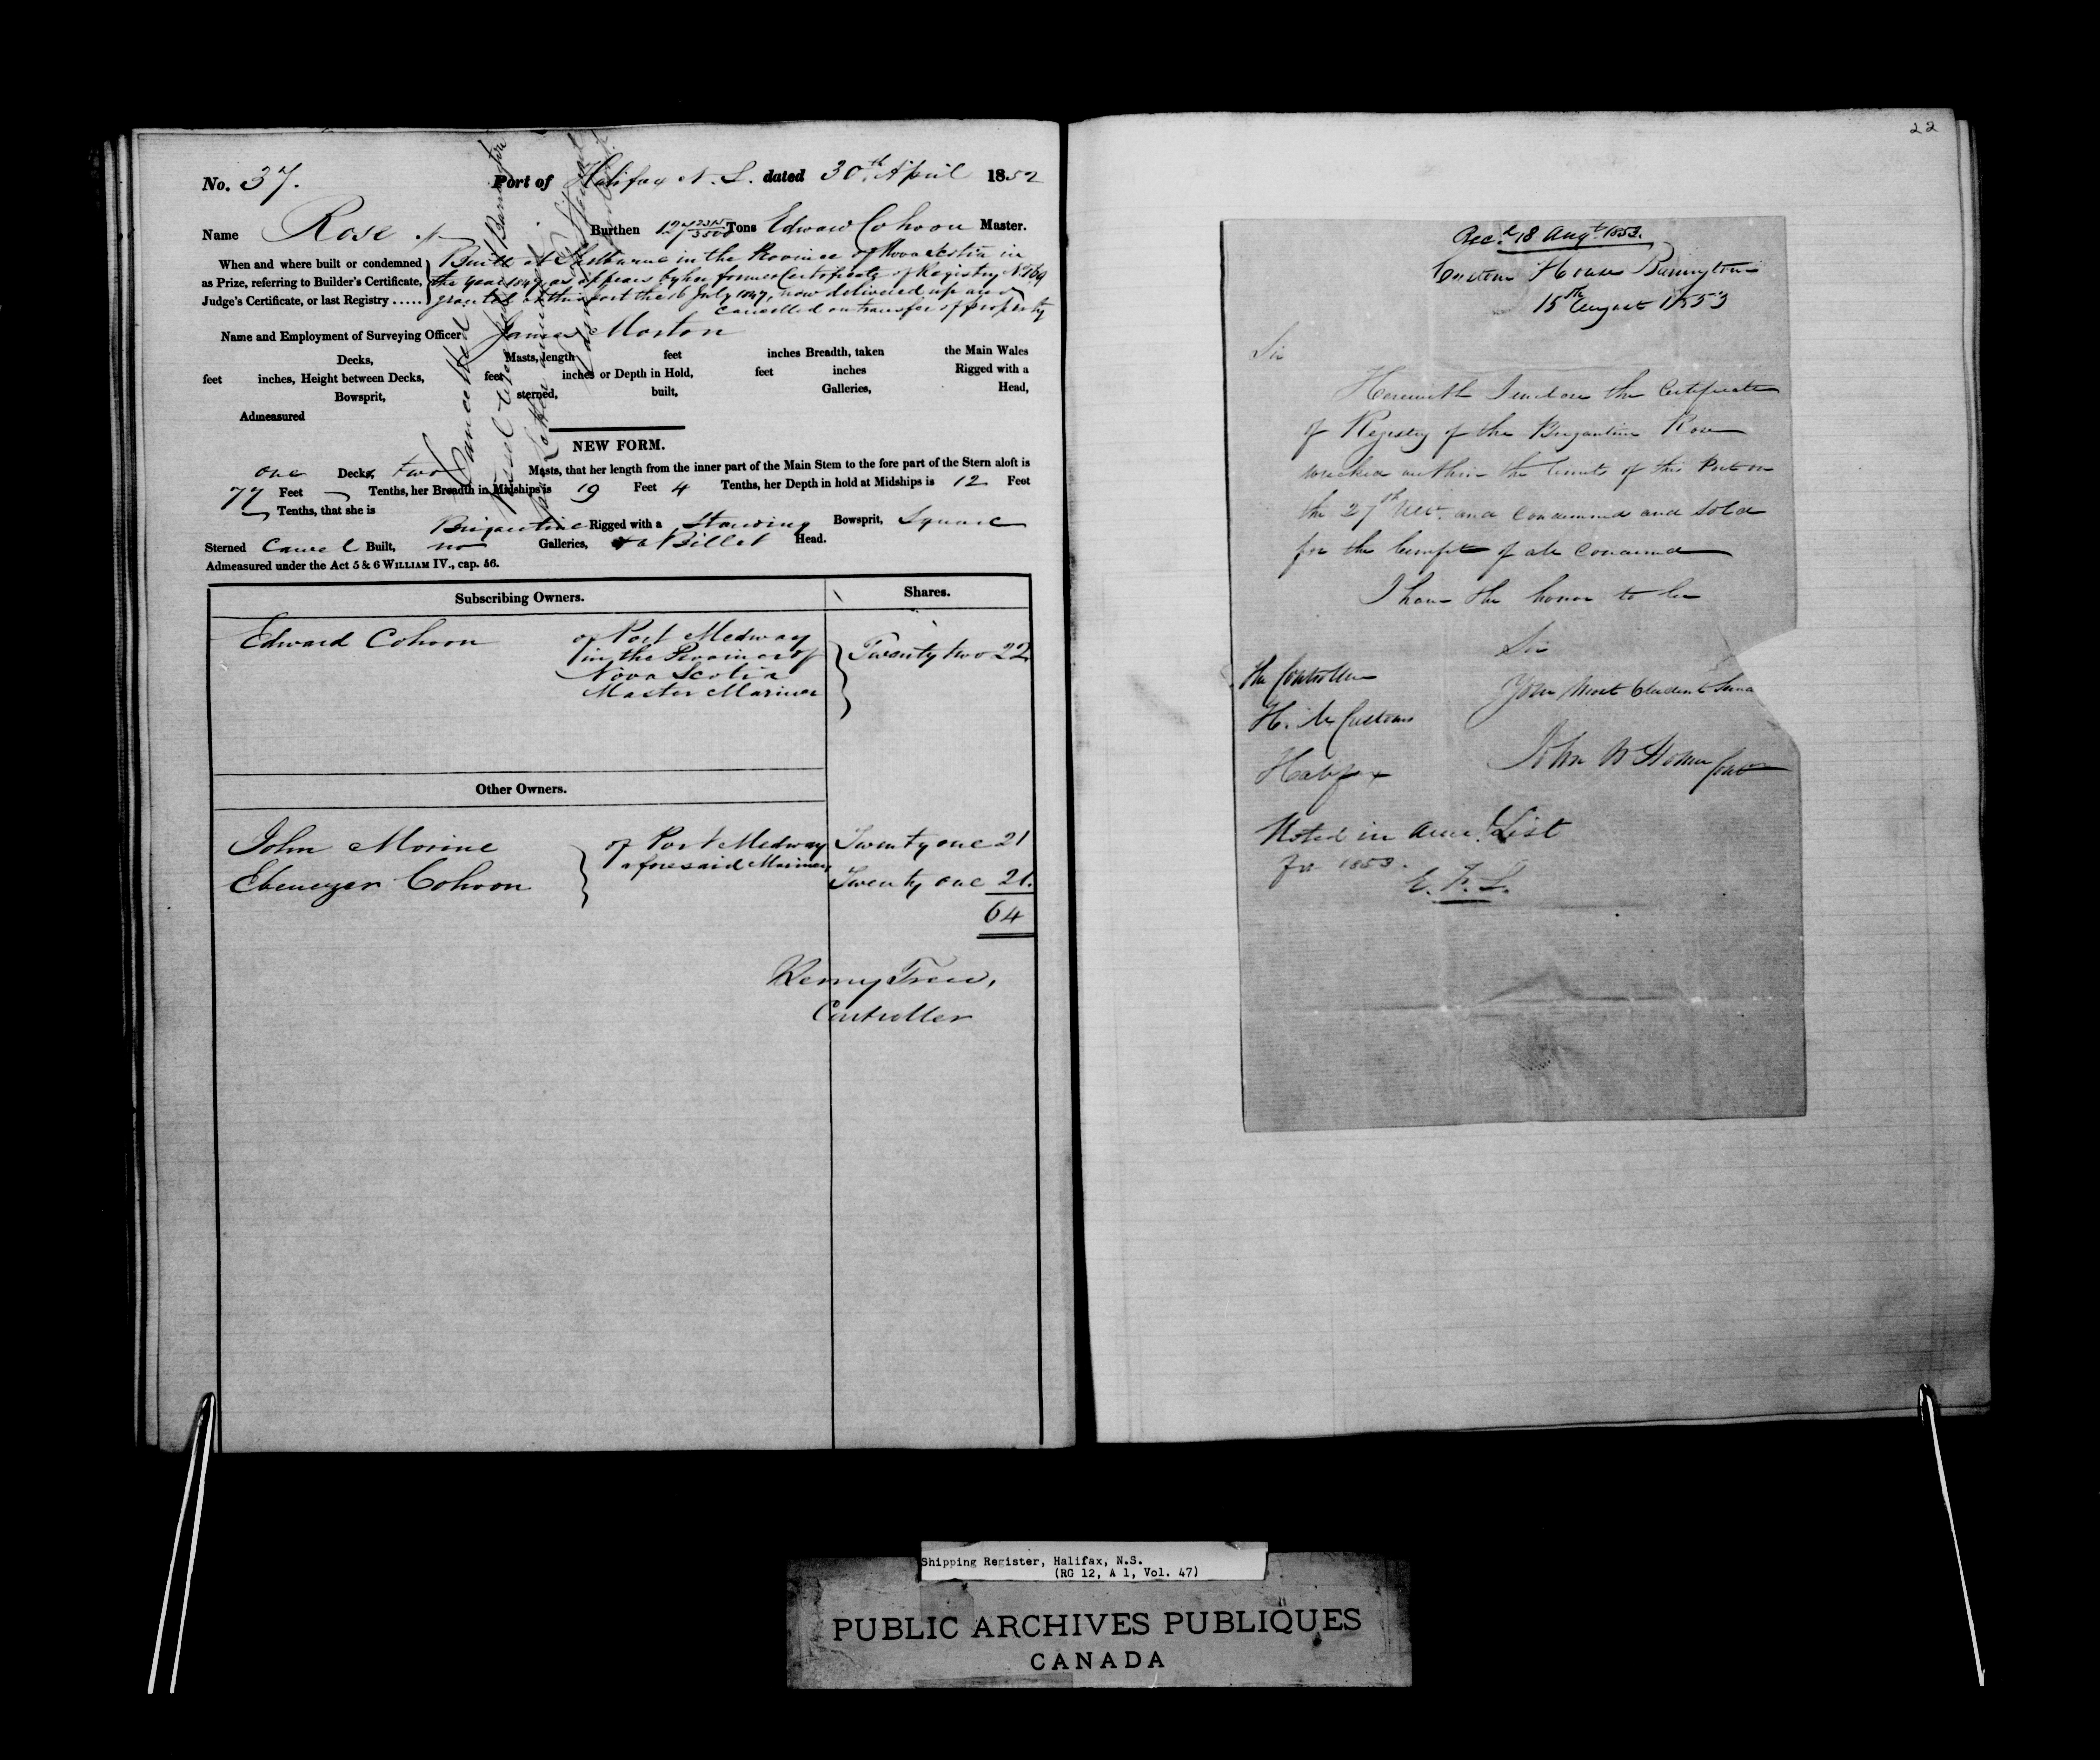 No. 37. Port of Halifax N. S. dated 30th April 1852
Name Rose Burthen 127 2315/3500 Tons Edward Cohoon Master.
When and where built or condemned as Prize, referring to Builder's Certificate, Judge's Certificate, or last Registry ......
Built at Shelburne in the Province of Nova Scotia in
the year 1847 as appears by her former Certificate of Registry No.
granted at this port the 16 July 1847, now delivered up and
cancelled on transfer of property
Name and Employment of Surveying Officer James Morton
Decks, Masts, length feet inches Breadth, taken the Main Wales
feet inches, Height between Decks, feet inches or Depth in Hold, feet inches Rigged with a
Bowsprit, sterned, built, Galleries, Head,
Admeasured
Cancelled
NEW FORM.
one Decks, two Masts, that her length from the inner part of the Main Stem to the fore part of the Stern aloft is
77 Feet Tenths, her Breadth in Midships is 19 Feet 4 Tenths, her Depth in hold at Midships is 12 Feet
Tenths, that she is
Brigantine Rigged with a Standing Bowsprit, Square
Sterned Carvel Built, no Galleries, & a Billet Head.
Admeasured under the Act 5 & 6 WILLIAM IV., cap. 56.
Subscribing Owners. Shares.
Edward Cohoon of Port Medway Twenty two 22
in the Province of
Nova Scotia
Master Mariner
Other Owners.
John Morine of Port Medway Twenty one 21
aforesaid Mariners
Ebenezer Cohoon Twenty one 21.
64
Controller
22
Rec.d 18 Augt. 1853.
Custom House Barrington
15th August 1853
Sir
Herewith I enclose the Certificate
of Registry of the Brigantine Rose
wrecked within the limits of this Port on
the 27th and Condemned and Sold
for the benefit of all Concerned
I have the honor to be
Sir
Your Most Obedient Serva
The Controller
H. M Customs
Halifax
John W Homer
Noted in List
for 1853.
E. F. L.
Shipping Register, Halifax, N.S.
(RG 12, A 1, Vol. 47)
PUBLIC ARCHIVES PUBLIQUES
CANADA